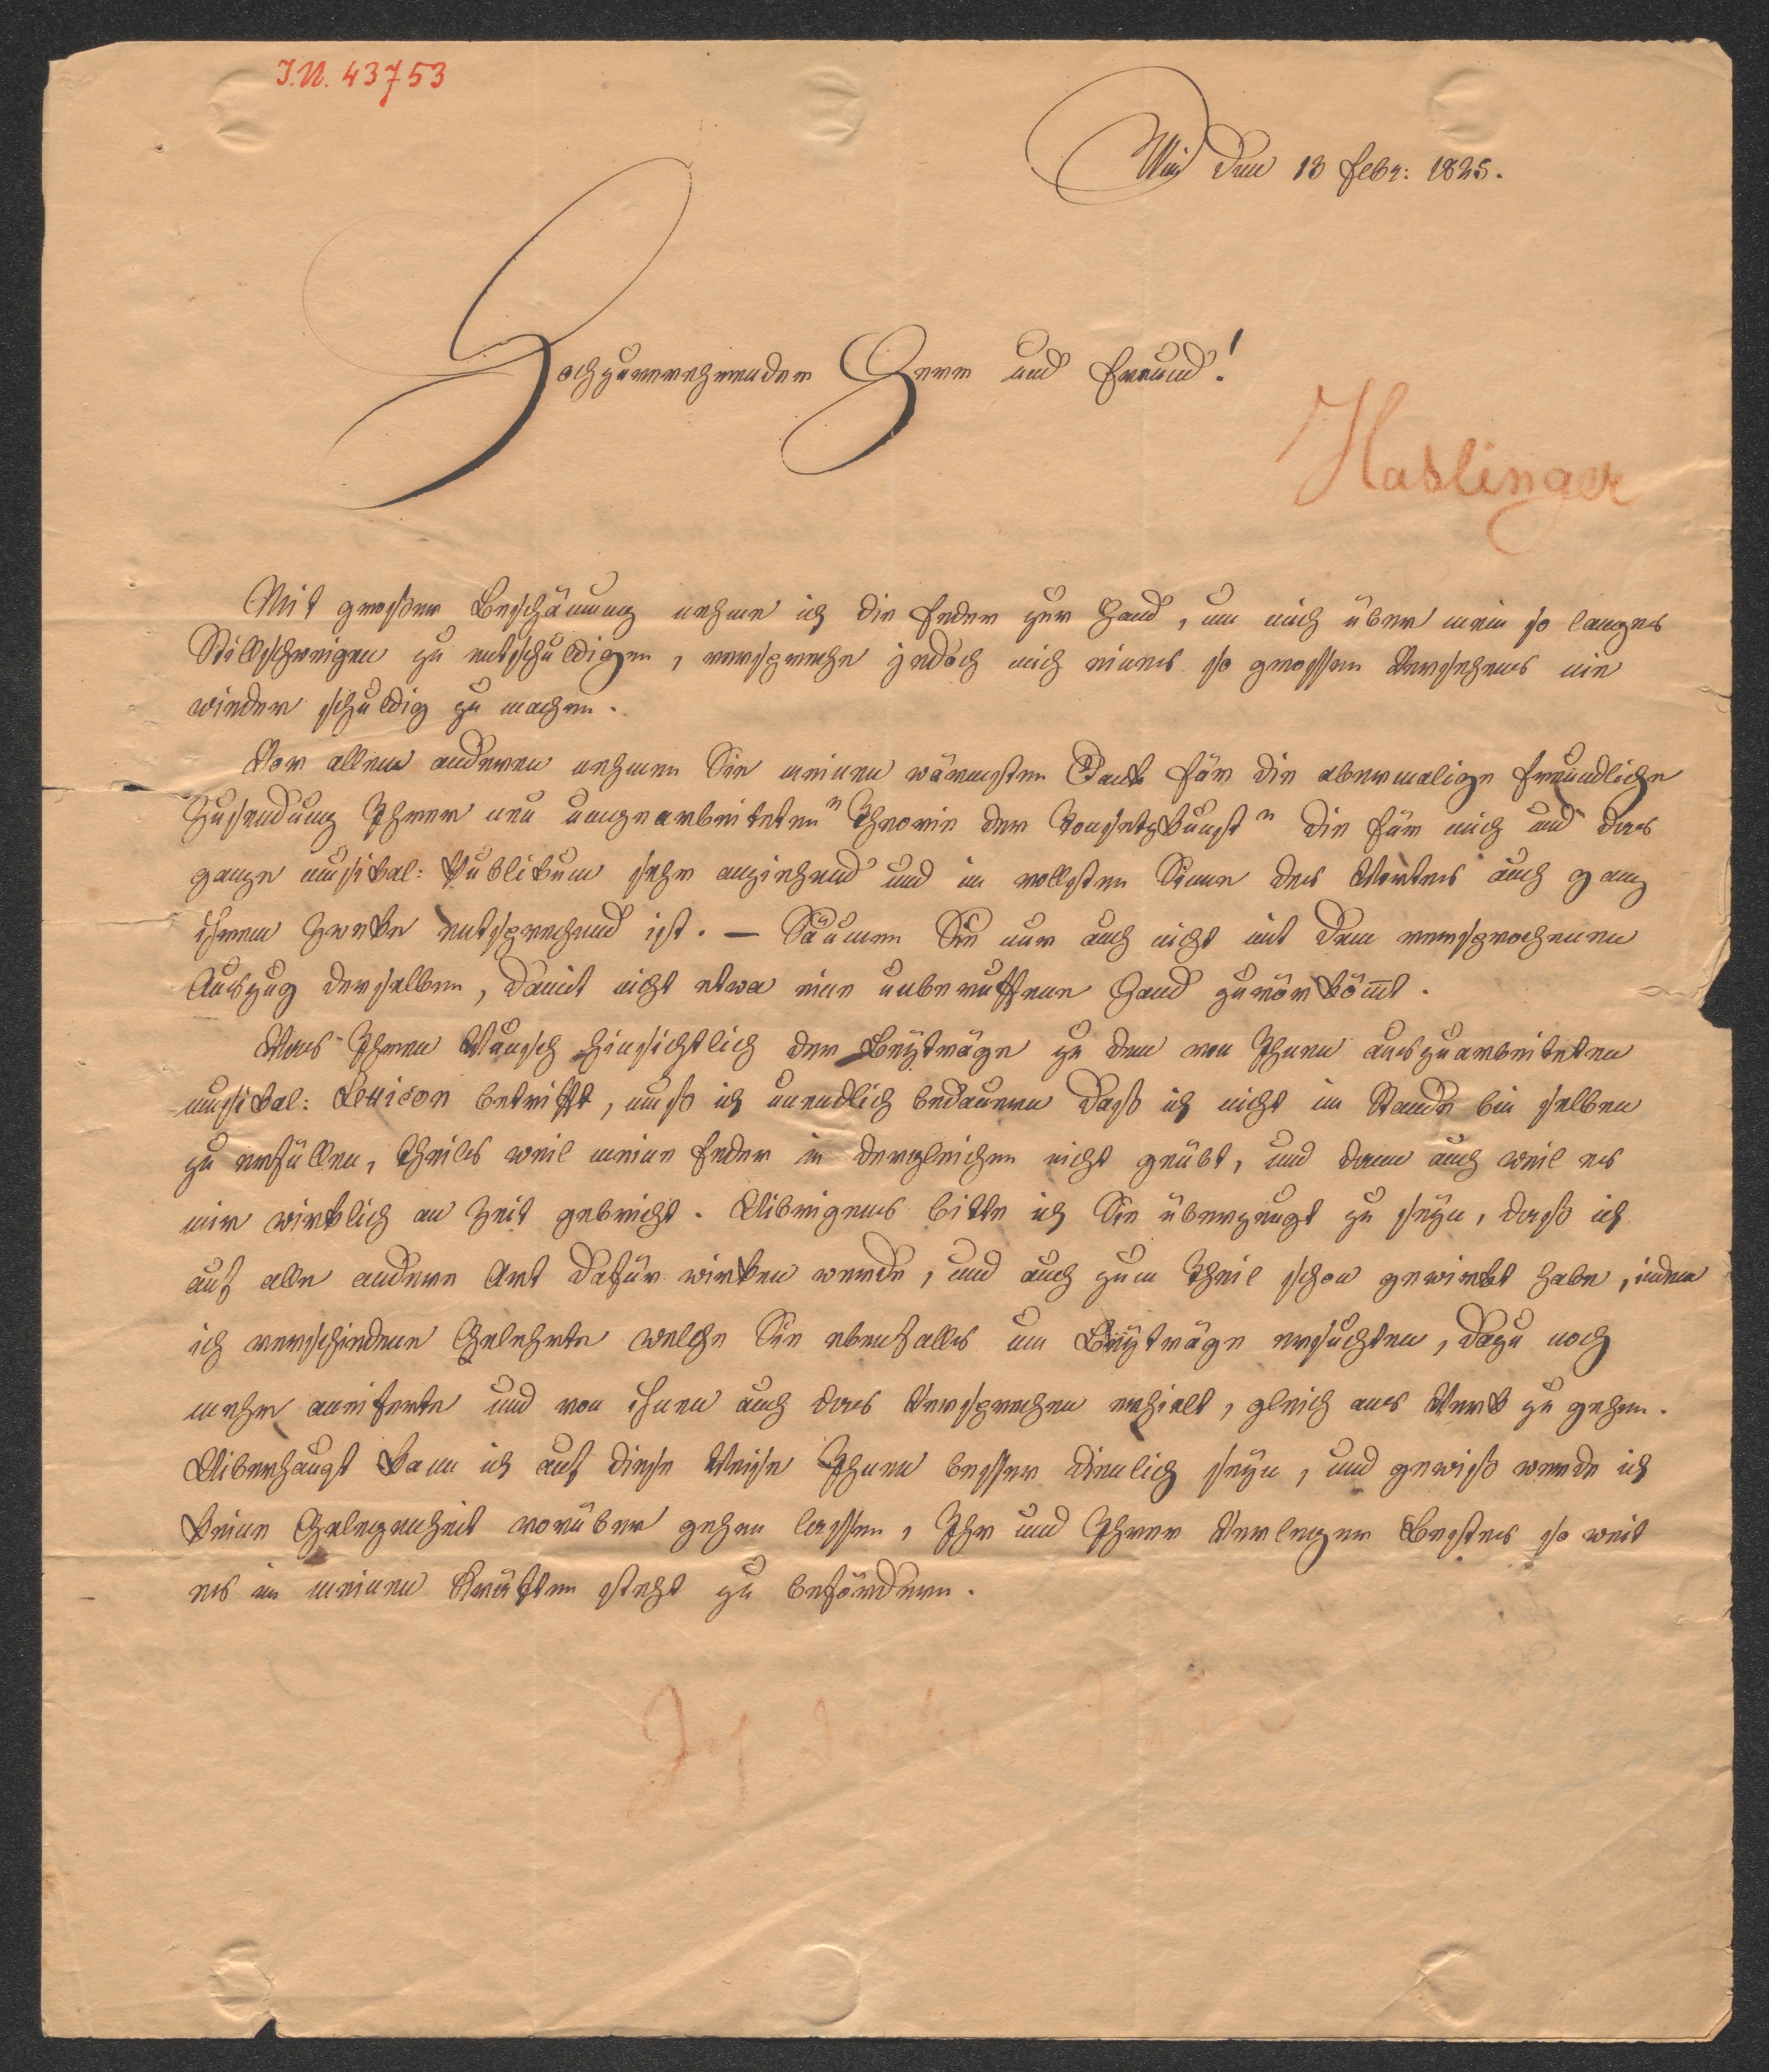 I.N. 43753
Wien den 13 Febr: 1825.
Hochzuverehrender Herr und Freund!
Haslinger
Mit großer Beschämung nehme ich die Feder zur Hand, um mich über mein so langes
Stillschweigen zu entschuldigen, verspreche jedoch mich eines so grossen Versehens nie
wieder schuldig zu machen.
Vor allem anderen nehmen Sie meinen wärmsten Dank für die abermalige freundliche
Zusendung Ihrer neu umgearbeiteten "Theorie der Tonsetzkunst" die für mich und das
ganze musikal: Publikum sehr anziehend und im vollsten Sinne des Wortes auch ganz
ihrem Zweke entsprechend ist. — Säumen Sie nur auch nicht mit dem versprochenen
Auszug derselben, damit nicht etwa eine unberuffene Hand zuvör kömt.
Was Ihren Wunsch hinsichtlich der Beyträge zu dem von Ihnen auszuarbeiteten
musikal: Lexicon betrifft, muß ich unendlich bedauern daß ich nicht im Stande bin selben
zu erfüllen, theils weil meine Feder in dergleichen nicht geübt, und dann auch weil es
mir wirklich an Zeit gebricht. Uibrigens bitte ich Sie überzeugt zu seyn, daß ich
auf alle andere Art dafür wirken werde, und auch zum Theil schon gewirkt habe, indem
ich verschiedene Gelehrte welche Sie ebenfalls um Beyträge ersuchten, dazu noch
mehr aneiferte und von ihnen auch das Versprechen erhielt, gleich ans Werk zu gehen.
Uiberhaupt kann ich auf diese Weise Ihnen besser dienlich seyn, und gewiß werde ich
keine Gelegenheit vorüber gehen lassen, Ihr und Ihrer Verleger Bestes so weit
es in meinen Kräften steht zu befördern.